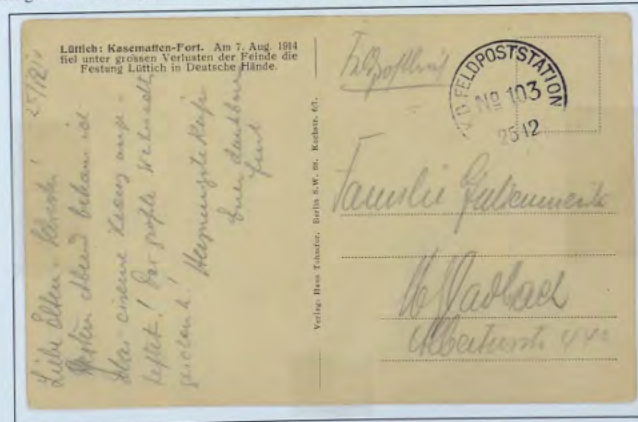 Lüttich: Kasematten-Fort. Am 7. Aug. 1914
fiel unter grossen Verlusten der Feinde die
Festung Lüttich in Deutsche Hände.
25/12 14
Liebe Eltern
Gestern Abend bekam ich
das eiserne Kreuz ange-
heftet! Das größte Weihnachts
geschenk!
Euer dankbarer
Verlag: Hans Tshmfor, Berlin S.W. 68. Kochstr. 67.
Feldpostbrief
K.D. FELDPOSTSTATION
No 103
25 12
Familie
M Gladbach
Albertusstr 44a